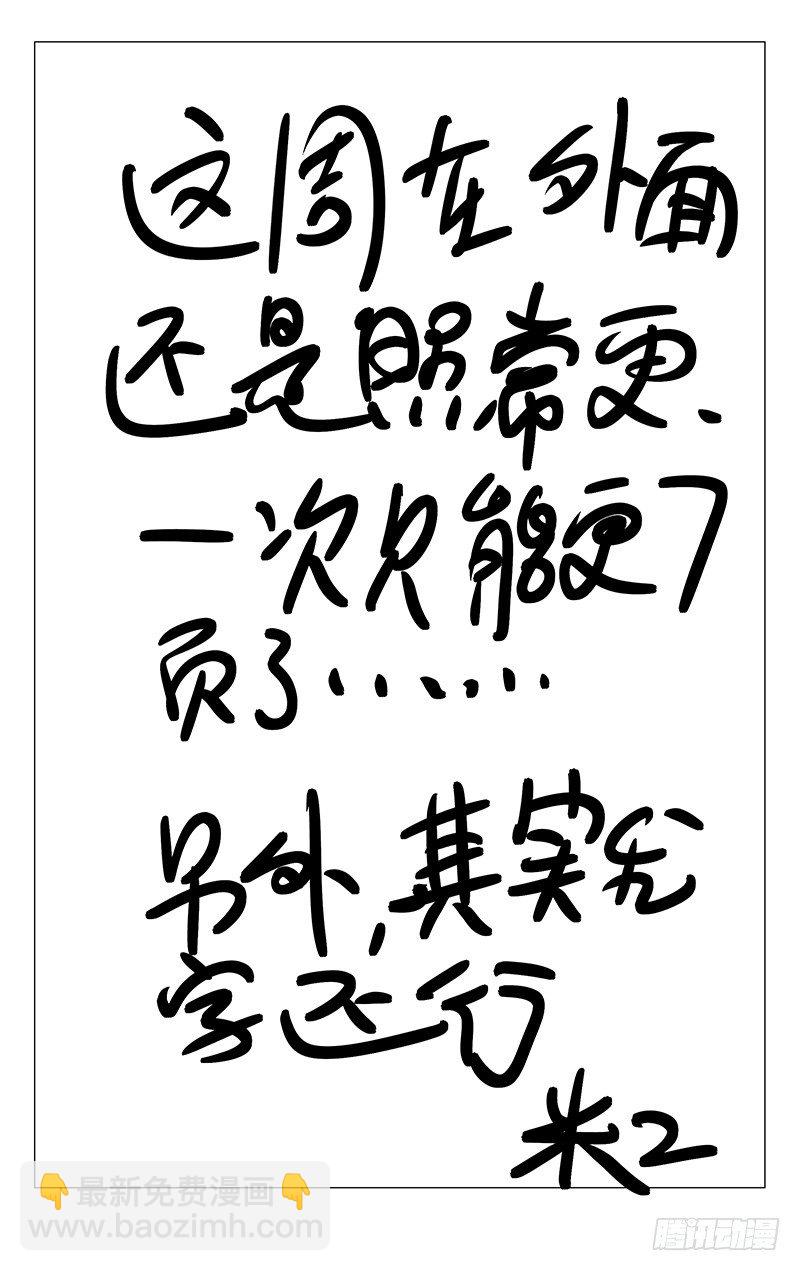 这周在外面
还是照常更、
一次只能更7
页了……
另外，其实我
字还行
米二
👇最新免费漫画👇
www.baozimh.com
腾讯动漫